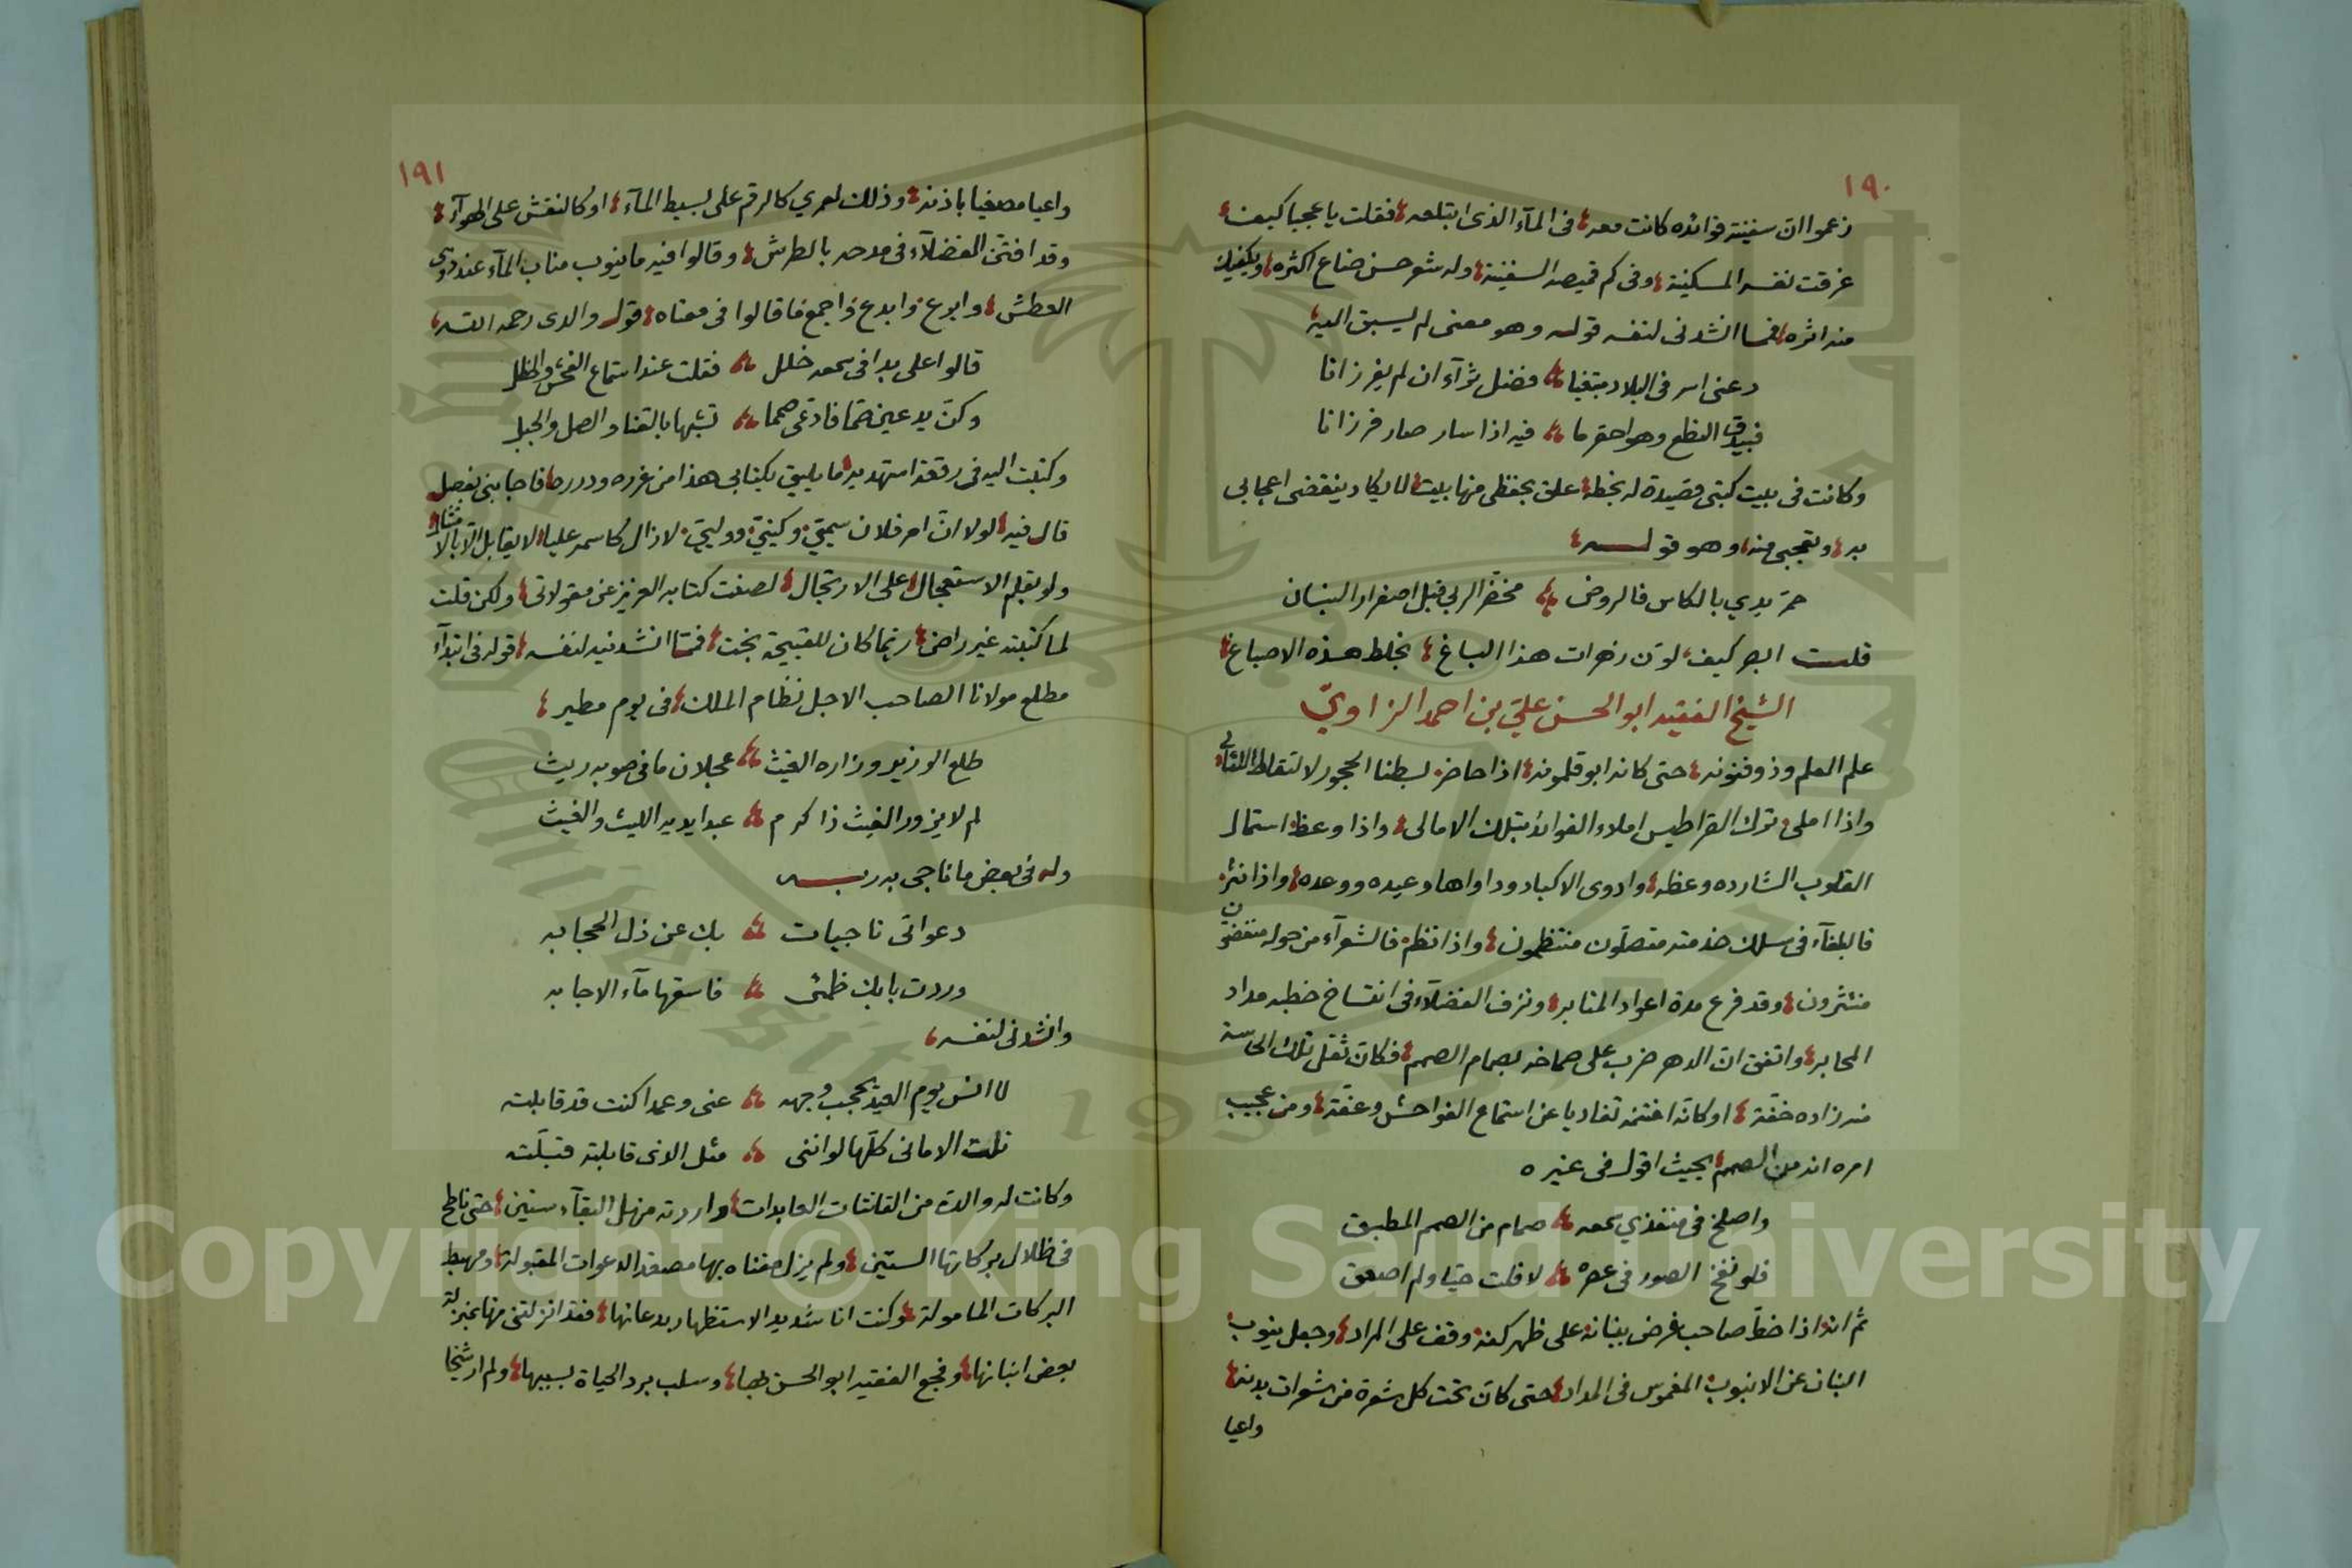 ١٩٠
زعموا ان سفينة فوائده كانت معه في المآء الذي ابتلعه فقلت يا عجبا كيف
غرقت نفسه المسكينة وفي كم قميصه السفينة وله شعر حسن ضاع اكثره ويكفيك
منه اثره فمما انشدني لنفسه قوله وهو معنى لم يسبق اليه
دعني اسر في البلاد مبتغيا فضل ثرآء ان لم يفرزانا
فبيدق النطع وهو احقر ما فيه اذا سار صار فرزانا
وكانت في بيت كتبي قصيدة له بخطه علق بحفظي منها بيت لا يكاد ينقضي اعجابي
به وتعجبي منه وهو قوله
حمّر يدي بالكاس فالروض مخضّر الربى قبل اصفرار البنان
قلت ابصر كيف لون زهرات هذا الباغ بخلط هذه الاصباغ
الشيخ الفقيه ابو الحسن علي بن احمد الزاوي
علم العلم وذو فنونه حتى كانه ابو قلمونه اذا حاضر بسطنا الحجور لالتقاط اللئالي
واذا املى ترك القراطيس املاء الفوائد بتلك الامالي واذا وعظ استمال
القلوب الشارده وعظه وادوى الاكباد وداواها وعيده ووعده واذا نثر
فالبلغآء في سلك خدمته متصلون منتظمون واذا نظم فالشعرآء من حوله منفضون
منتثرون وقد فرع مدة اعواد المنابر ونزف الفضلآء في انتساخ خطبه مداد
المحابر واتفق ان الدهر ضرب على صماخه بصمام الصمم فكان ثقل تلك الحاسة
منه زاده خفّة او كانه اغتنمه تفاديا عن استماع الفواحش وعفّة ومن عجيب
امره انه من الصمم بحيث اقول في غيره
واصلخ في منفذي سمعه صمام من الصمم المطبق
فلو نفخ الصور في عصره لافلت حيّا ولم اصعق
ثم انه اذا خطّ صاحب غرض ببنانه على ظهر كفه وقف على المراد وجعل ينوب
البنان عن الانبوب المغموس في المداد حتى كان تحت كل شعرة من شعرات بدنه
واعيا
١٩١
واعيا مصغيا باذنه وذلك لعمري كالرقم على بسيط المآء او كالنقش على الهوآء
وقد افتنّ الفضلآء في مدحه بالطرش وقالوا فيه ما ينوب مناب المآء عند ذوي
العطش وابرع وابدع واجمع ما قالوا في معناه قول والدي رحمه الله
قالوا على بدا في سمعه خلل فقلت عند استماع الفحش والخطل
وكن يدعين صمّا فادّعى صمما تشبّها بالقنا والصل والجبل
وكتبت اليه في رقعة استهديه ما يليق بكتابي هذا من غرره ودرره فاجابني بفصل
قال فيه لولا ان امر فلان سميّي وكنيّي ووليّي لا زال كاسمه عليا لا يقابل الا بالامتثال
ولو بقلم الاستعجال على الارتجال لصنت كتابه العزيز عن مقولاتي ولكن قلت
لما كتبته غير راض ربما كان للقبيحة بخت فمما انشدنيه لنفسه قوله في ابتدآء
مطلع مولانا الصاحب الاجل نظام الملك في يوم مطير
طلع الوزير وزاره الغيث عجلان ما في صوبه ريث
لم لا يزور الغيث ذا كرم عبدا يديه الليث والغيث
وله في بعض ما ناجى به ربه
دعواتى ناجيات بك عن ذل الحجابه
وردت بابك ظمئى فاسقها مآء الاجابه
وانشدني لنفسه
لا انس يوم العيد يحجب وجهه عنى وعمدا كنت قد قابلته
نلت الامانى كلّها لو اننى مثل الذى قابلته قبّلته
وكانت له والدة من القانتات العابدات واردته منهل البقآء سنين حتى ناطح
في ظلال بركاتها الستين ولم يزل مغناه بها مصعد الدعوات المقبولة ومهبط
البركات المامولة وكنت انا شديد الاستظهار بدعائها فقد انزلتني منها بمنزلة
بعض ابنائها وفجع الفقيه ابو الحسن بها وسلب برد الحياة بسببها ولم ار شيخا